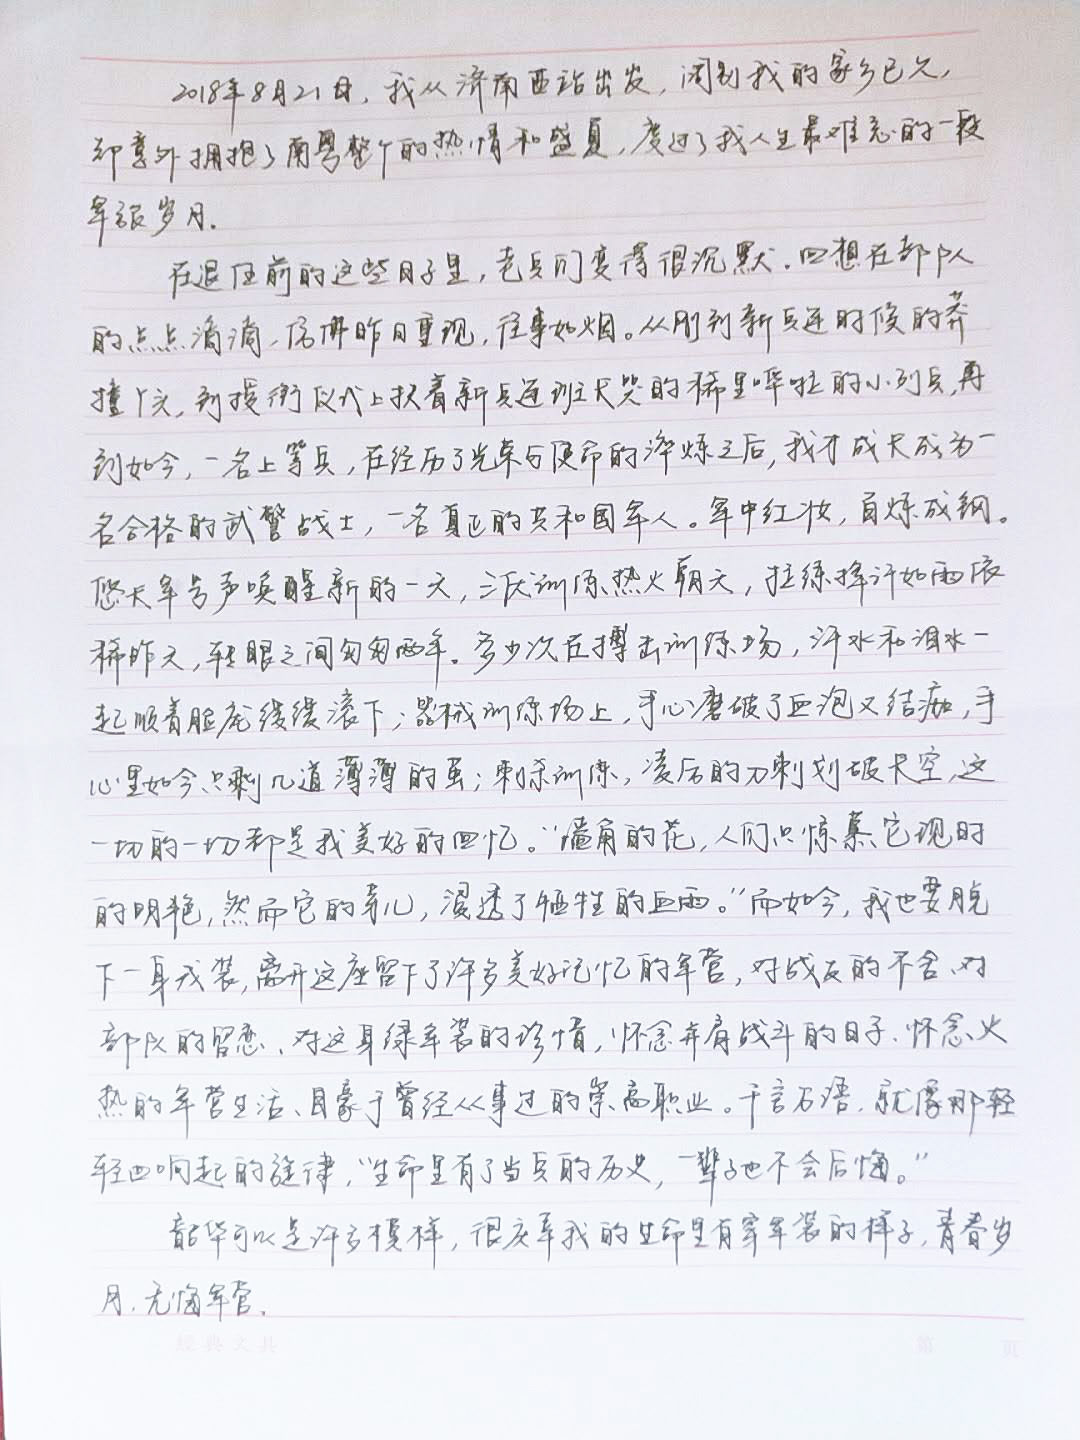 2018年8月21日，我从济南西站出发，阔别我的家乡已久，
却意外拥抱了南粤整个的热情和盛夏，度过了我人生最难忘的一段
军旅岁月.
在退伍前的这些日子里，老兵们变得很沉默.回想在部队
的点点滴滴，仿佛昨日重现，往事如烟。从刚到新兵连时候的莽
撞个它，到授衔仪式上扶着新兵连班大哭的稀里哗啦的小列兵，再
到如今，一名上等兵，在经历了光荣与使命的淬炼之后，我才成长成为一
名合格的武警战士，一名真正的共和国军人。军中红妆，百炼成钢。
悠长军号声唤醒新的一天，三伏训练热火朝天，拉练挥汗如雨依
稀昨天，转眼之间匆匆两年。多少次在搏击训练场，汗水和泪水一
起顺着脸庞缓缓滚下；器械训练场上，手心磨破了血泡又结痂，手
心里如今只剩几道薄薄的茧；刺杀训练，凌厉的刀刺划破长空，这
一切的一切都是我美好的回忆。“墙角的花，人们只惊慕它现时
的明艳，然而它的芽儿，浸透了牺牲的血雨。”而如今，我也要脱
下一身戎装，离开这座留下了许多美好记忆的军营，对战友的不舍、对
部队的留恋、对这身绿军装的珍惜，怀念并肩战斗的日子、怀念火
热的军营生活、自豪于曾经从事过的崇高职业。千言万语，就像那轻
轻回响起的旋律，“生命里有了当兵的历史，一辈子也不会后悔。”
韶华可以是许多模样，很庆幸我的生命里有穿军装的样子，青春岁
月，无悔军营.
经典文具 第 页